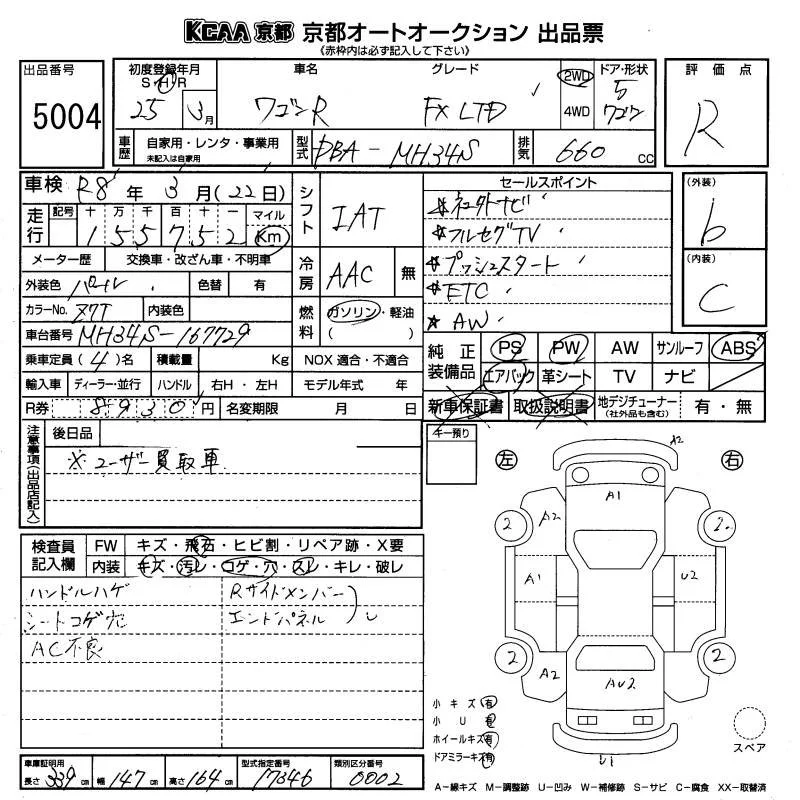 KCAA 京都 京都オートオークション 出品票
《赤枠内は必ず記入して下さい》
出品番号 5004
初度登録年月 S・H・R 25年 3月
車名 ワゴンR
グレード FX LTD
2WD 4WD
ドア・形状 5 ワゴン
評価点 R
車歴 自家用・レンタ・事業用 未記入は自家用
型式 DBA-MH34S
排気 660 CC
車検 R8年 3月(22日)
走行 記号 十 万 千 百 十 一 マイル
155752 Km
シフト IAT
セールスポイント
☆ネユクトナビ
☆フルセグTV
☆プッシュスタート
☆ETC
☆AW
(外装) b
(内装) C
メーター歴 交換車・改ざん車・不明車
冷房 AAC 無
外装色 パール 色替 有
カラーNo. Z7T 内装色
燃料 ガソリン・軽油 ( )
車台番号 MH34S-167729
乗車定員 (4)名 積載量 Kg NOX 適合・不適合
輸入車 ディーラー・並行 ハンドル 右H・左H モデル年式 年
R券 8930円 名変期限 月 日
純正装備品 PS PW AW サンルーフ ABS
エアバック 革シート TV ナビ
新車保証書 取扱説明書 地デジチューナー(社外品も含む) 有・無
注意事項(出品店記入) 後日品
※ユーザー買取車
キー預り
左 右
A2
A1
A2
2 2
A1 U2
2 2
A2 AU2
U1
検査員記入欄 FW キズ・飛石・ヒビ割・リペア跡・X要
内装 キズ・汚レ・コゲ・穴・スレ・キレ・破レ
ハンドルハゲ Rサイドメンバー
シートコゲ穴 エンドパネル し
AC不良
小キズ 有
小U 有
ホイールキズ 有
ドアミラーキズ 有
スペア
車庫証明用 長さ 339cm 幅 147cm 高さ 164cm
型式指定番号 17346
類別区分番号 0002
A-線キズ M-調整跡 U-凹み W-補修跡 S-サビ C-腐食 XX-取替済